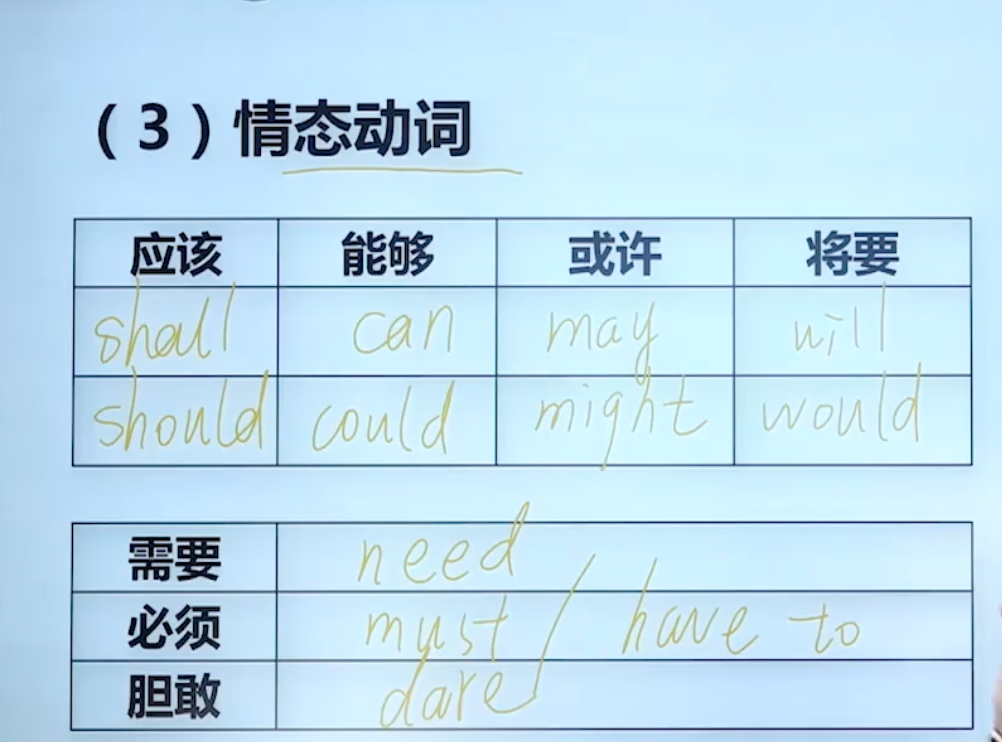 （3）情态动词
应该 能够 或许 将要
shall can may will
should could might would
需要 need
必须 must / have to
胆敢 dare